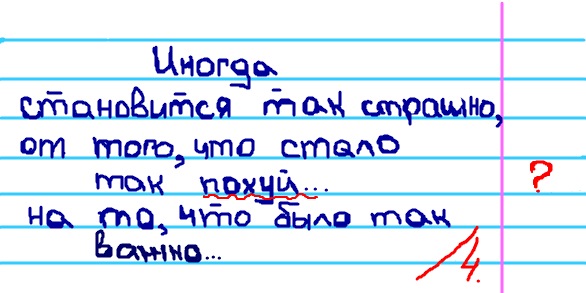 Иногда
становится так страшно,
от того, что стало
так похуй...
?
на то, что было так
важно...
4.